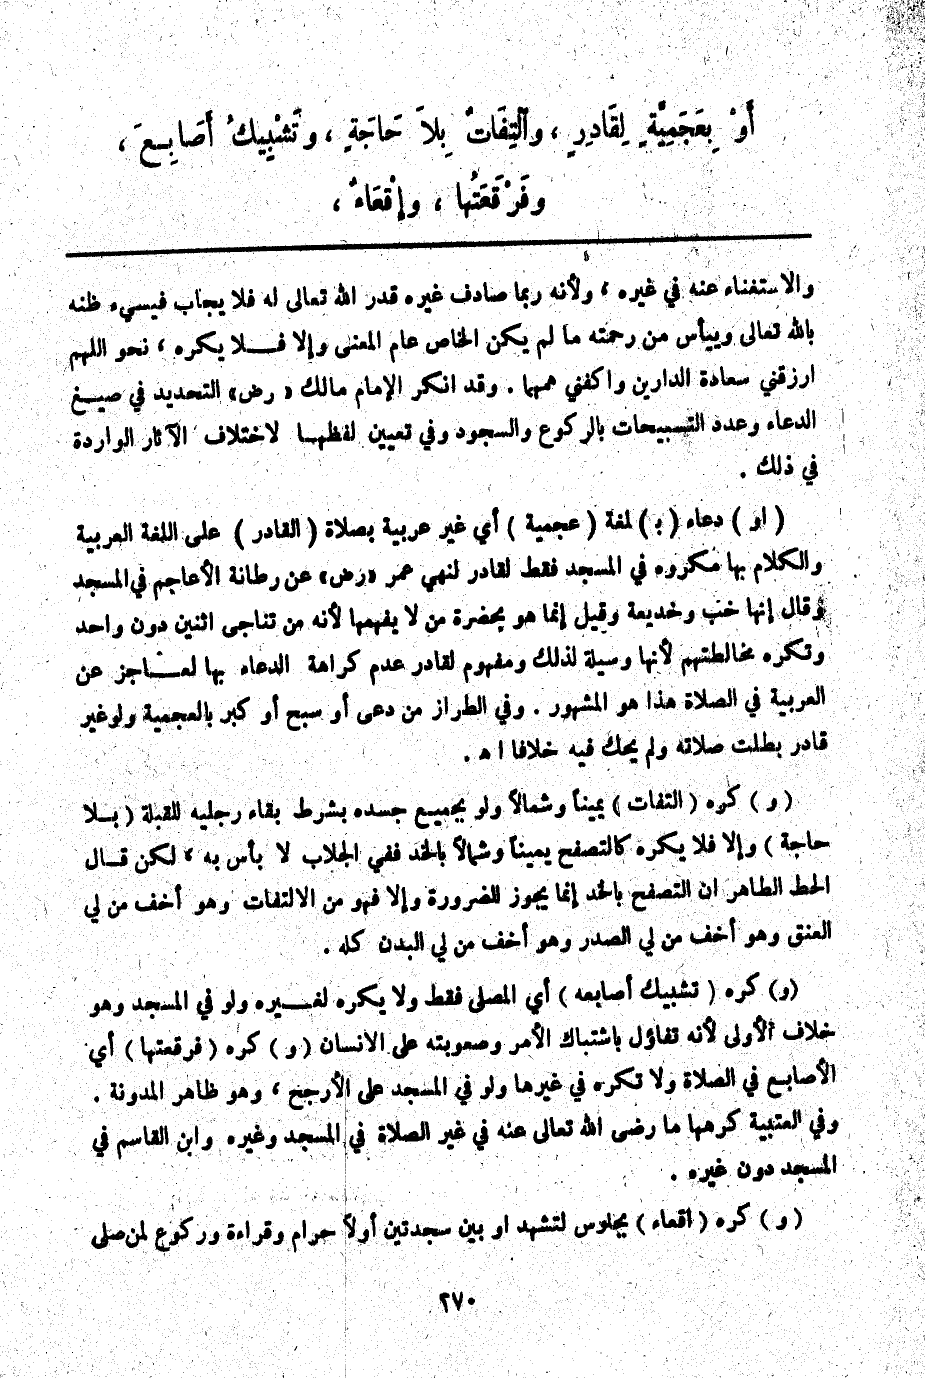 أَوْ بِعَجَمِيَّةٍ لِقَادِرٍ ، وَٱلْتِفَاتٌ بِلاَ حَاجَةٍ ، وَتَشْبِيكُ أَصَابِعَ ،
وَفَرْقَعَتُها ، وَإِقْعَاءٌ ،
والاستغناء عنه في غيره ، ولأنه ربما صادف غيره قدر الله تعالى له فلا يجاب فيسيء ظنه
بالله تعالى وييأس من رحمته ما لم يكن الخاص عام المعنى وإلا فــلا يكره ، نحو اللهم
ارزقني سعادة الدارين واكفني همهما . وقد انكر الإمام مالك « رض» التحديد في صيــغ
الدعاء وعدد التسبيحات بالركوع والسجود وفي تعيين لفظهــا لاختلاف الآثار الواردة
في ذلك .
( او ) دعاء ( بـ ) لغة ( عجمية ) أي غير عربية بصلاة ( القادر ) على اللغة العربية
والكلام بها مكروه في المسجد فقط لقادر لنهي عمر «رض» عن رطانة الأعاجم في المسجد
وقال إنها خب وخديعة وقيل إنما هو بحضرة من لا يفهمها لأنه من تناجى اثنين دون واحد
وتكره مخالطتهم لأنها وسيلة لذلك ومفهوم لقادر عدم كراهة الدعاء بها لعــاجز عن
العربية في الصلاة هذا هو المشهور . وفي الطراز من دعى أو سبح أو كبر بالعجمية ولو غير
قادر بطلت صلاته ولم يحك فيه خلافا ا ه .
( و ) كره ( التفات ) يميناً وشمالاً ولو بجميــع جسده بشرط بقاء رجليه للقبلة ( بــلا
حاجة ) وإلا فلا يكره كالتصفح يميناً وشمالاً بالخد ففي الجلاب لا بأس به ، لكن قــال
الحط الطاهر ان التصفح بالخد إنما يجوز للضرورة وإلا فهو من الالتفات وهو أخف من لي
العنق وهو أخف من لي الصدر وهو أخف من لي البدن كله .
(و) كره ( تشبيك أصابعه ) أي المصلى فقط ولا يكره لغــيره ولو في المسجد وهو
خلاف الأولى لأنه تفاؤل باشتباك الأمر وصعوبته على الانسان ( و ) كره ( فرقعتها ) أي
الأصابــع في الصلاة ولا تكره في غيرها ولو في المسجد على الأرجح ، وهو ظاهر المدونة .
وفي العتبية كرهها ما رضى الله تعالى عنه في غير الصلاة في المسجد وغيره وابن القاسم في
المسجد دون غيره .
( و ) كره ( اقعاء ) بجلوس لتشهد او بين سجدتين أولاً حرام وقراءة وركوع لمن صلى
٢٧٠